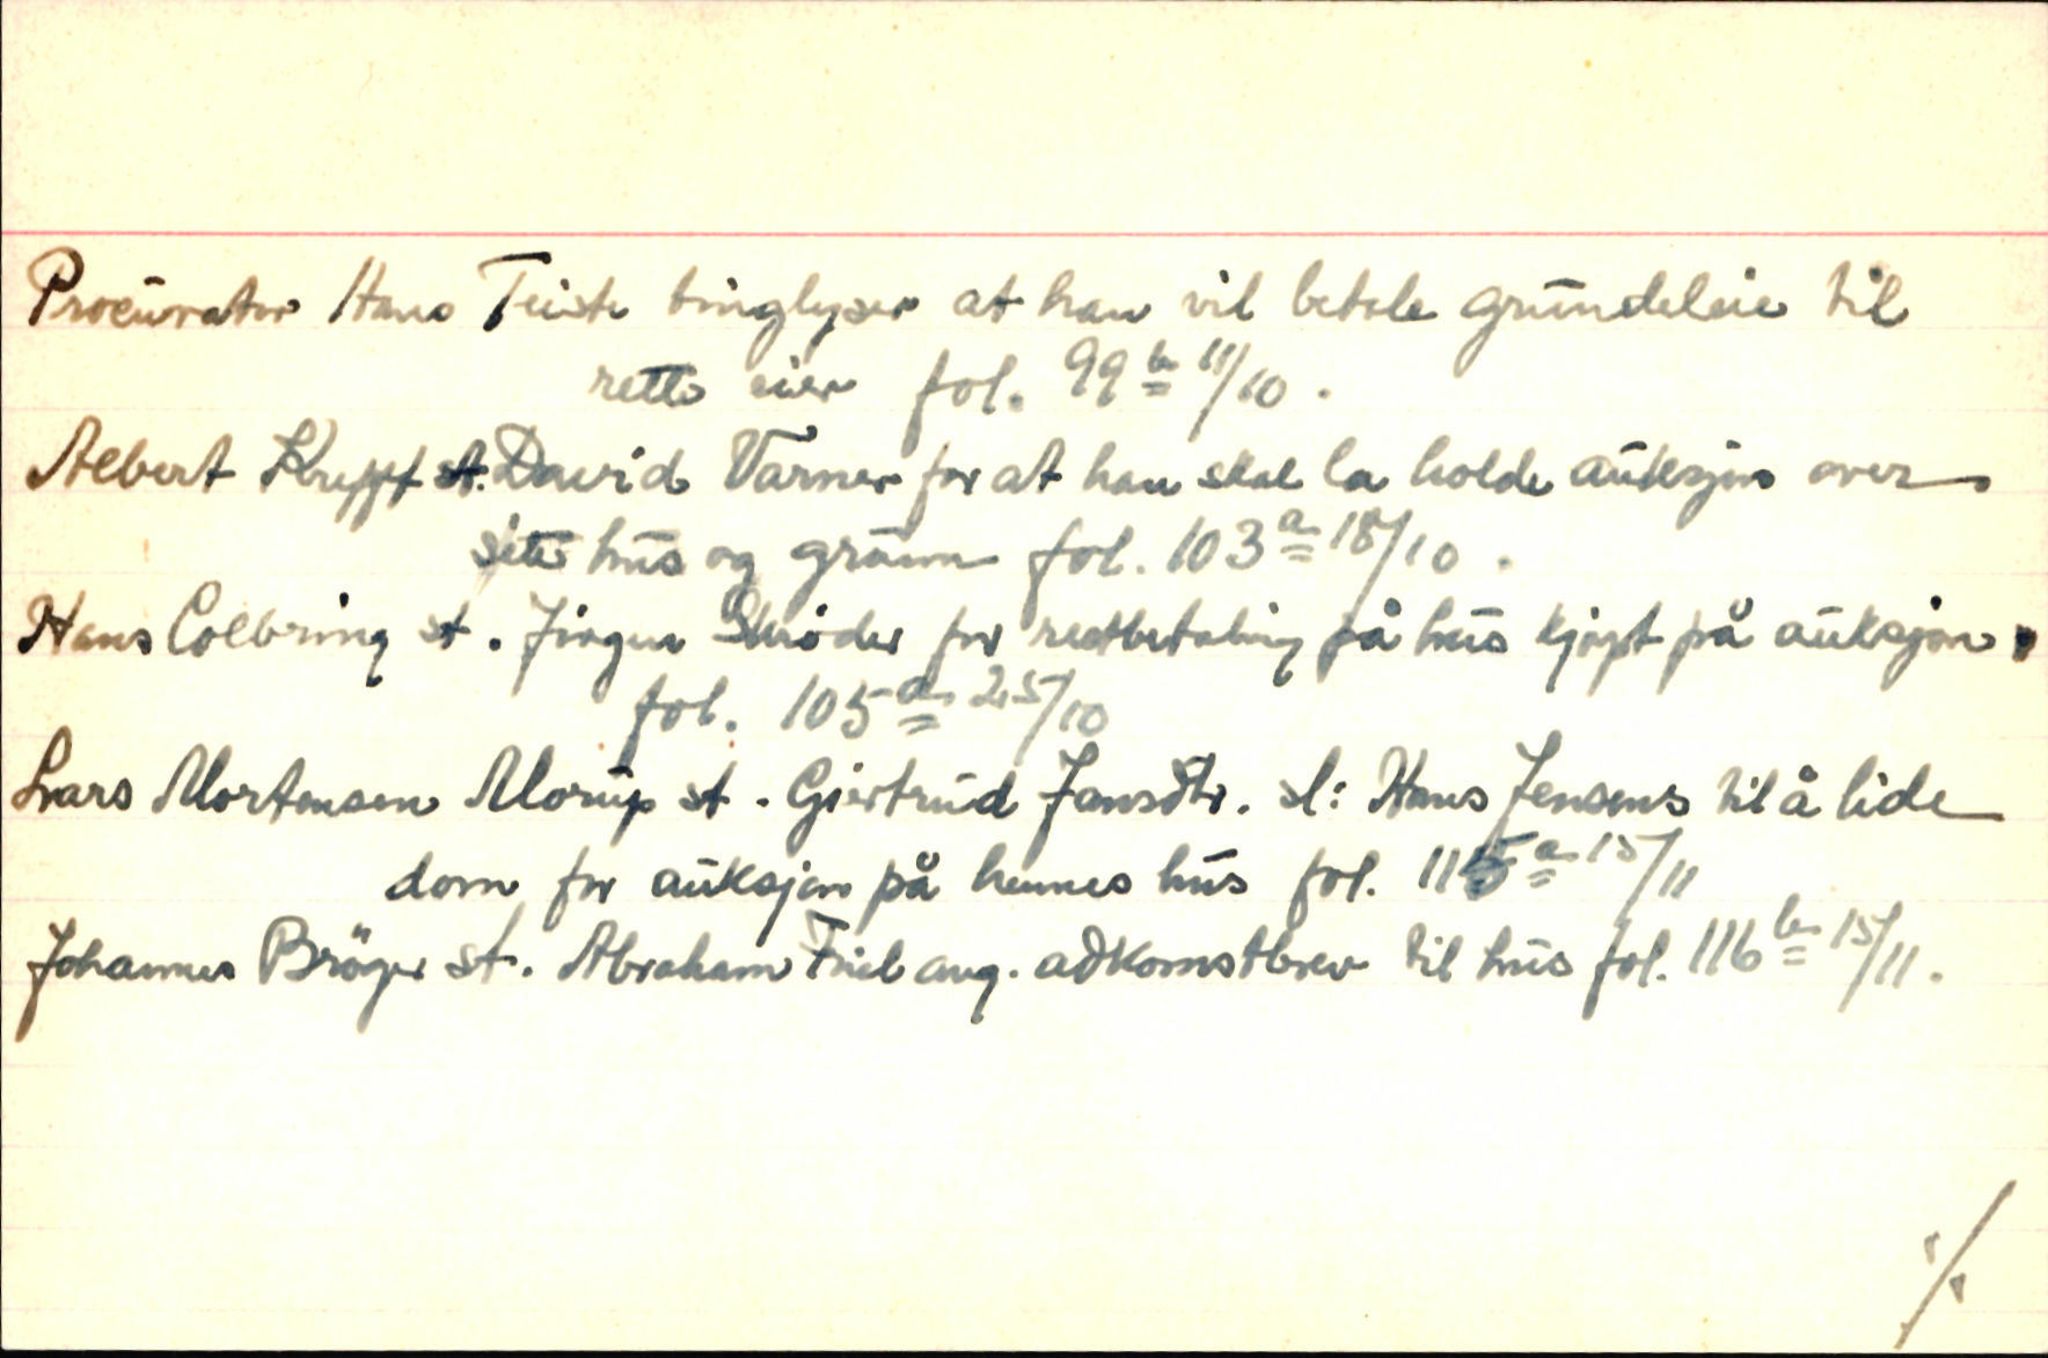 Procurator Hans Teiste tinglyser at han vil betale grundeleie til
rette eier fol. 99 b 11/10.
Albert Krepp st. David Varner for at han skal la holde auksjon over
sitt hus og grunn fol. 103 a 18/10.
Hans Colbring st. Jørgen Skrøder for restbetaling på hus kjøpt på auksjon.
fol. 105 a 25/10
Lars Mortensen Morup st. Giertrud Jansdtr. sl: Hans Jensens til å lide
dom for auksjon på hennes hus fol. 115 a 15/11
Johannes Bröger st. Abraham Friel ang. adkomstbrev til hus fol. 116 b 15/11.
./.